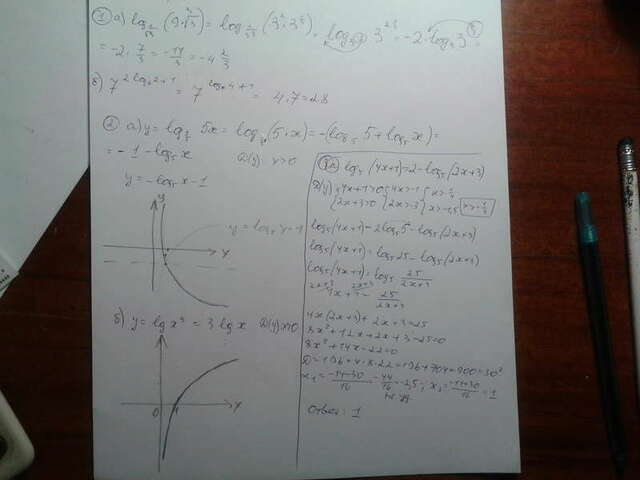 ① а) log (9·∛3) = log (3²·3^⅓) = log 3 = -2·log₃ 3 =
= -2·7/3 = -14/3 = -4 2/3
б) 7^(2log₇2+1) = 7^(log₇4+1) = 4·7=28
② а) y = log 5x = log (5·x) = -(log₅ 5 + log₅ x) =
= -1 - log₅ x D(y): x>0
y = -log₅ x - 1
y
x
б) y = lg x³ = 3 lg x D(y) x>0
y
0 1 x
log₅(4x+1)=2-log₅(2x+3)
D(y) { 4x+1>0 { 4x>-1 { x>-¼
{ 2x+3>0 { 2x>-3 { x>-1,5 x>-¼
log₅(4x+1) = 2log₅5 - log₅(2x+3)
log₅(4x+1) = log₅25 - log₅(2x+3)
log₅(4x+1) = log₅ 25/(2x+3)
4x+1 = 25/(2x+3)
4x(2x+3)+2x+3=25
8x²+12x+2x+3-25=0
8x²+14x-22=0
D=196+4·8·22=196+704=900=30²
x₁=(-14-30)/16=-44/16; x₂=(-14+30)/16=1
Ответ: 1